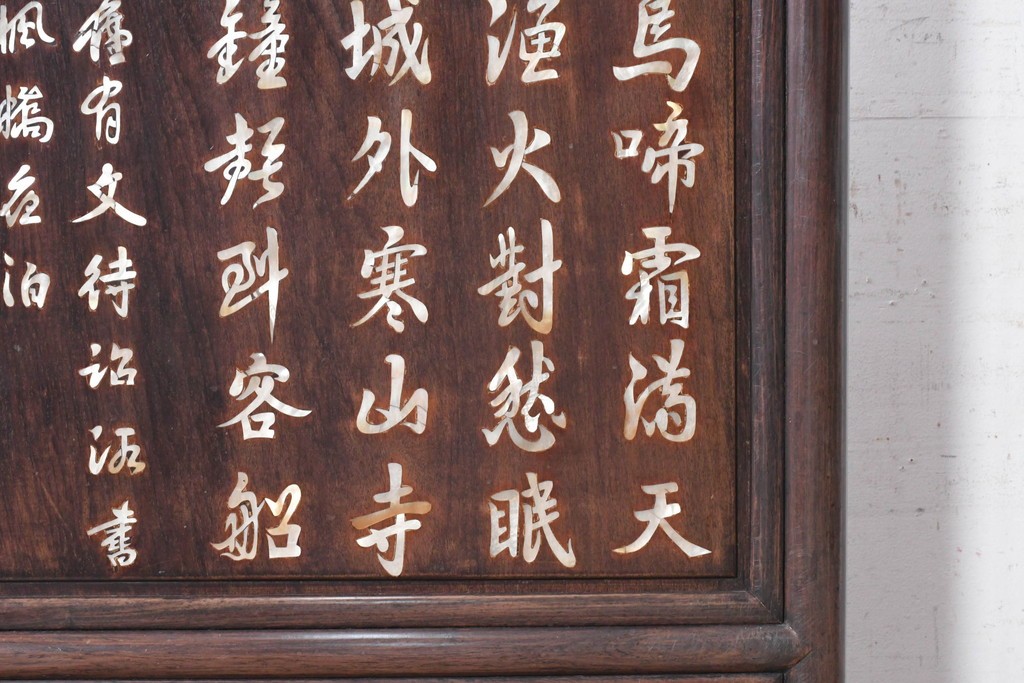 烏啼霜滿天
漁火對愁眠
城外寒山寺
鐘聲到客船
舊有文待詔所書
楓橋夜泊